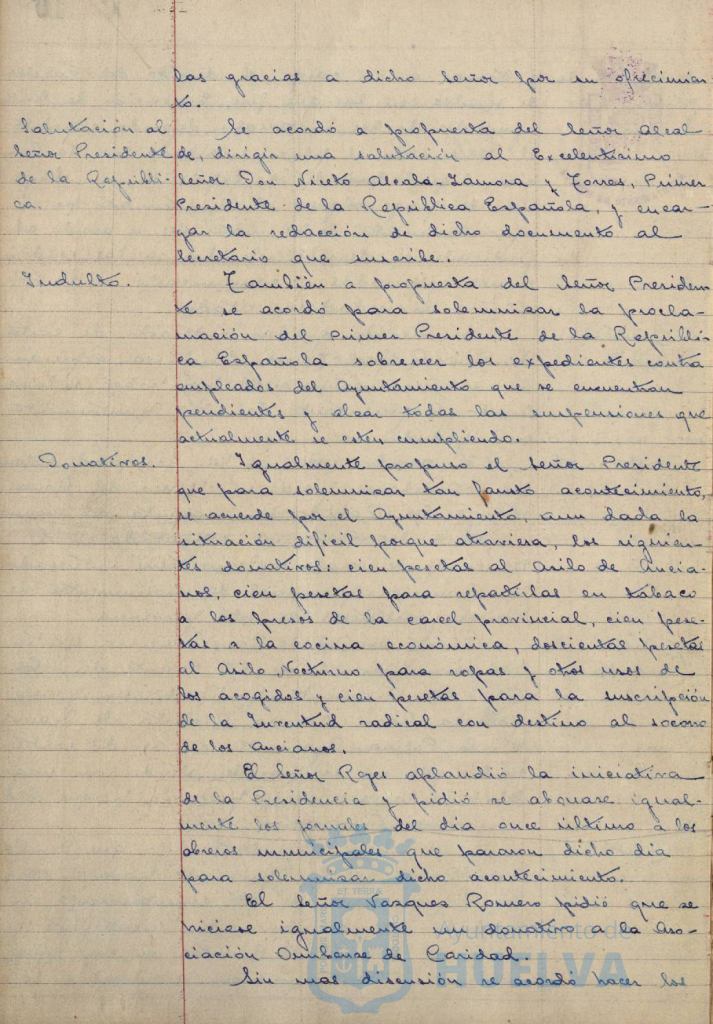 las gracias a dicho Señor por su ofrecimien
to.
Salutación al
Señor Presidente
de la Repúbli-
ca.
Se acordó a propuesta del Señor Alcal
de, dirigir una salutación al Excelentísimo
Señor Don Niceto Alcala-Zamora y Torres, Primer
Presidente de la República Española, y encar-
gar la redacción de dicho documento al
Secretario que suscribe.
Indulto.
También a propuesta del Señor Presiden
te se acordó para solemnizar la procla-
mación del primer Presidente de la Repúbli
ca Española sobreseer los expedientes contra
empleados del Ayuntamiento que se encuentran
pendientes y alzar todas las suspensiones que
actualmente se estén cumpliendo.
Donativos.
Igualmente propuso el Señor Presidente
que para solemnizar tan fausto acontecimiento,
se acuerde por el Ayuntamiento, aun dada la
situación dificil porque atraviesa, los siguien-
tes donativos: cien pesetas al Asilo de Ancia-
nos, cien pesetas para repartirlas en tabaco
a los presos de la carcel provincial, cien pese-
tas a la cocina económica, doscientas pesetas
al Asilo Nocturno para ropas y otros usos de
los acogidos y cien pesetas para la suscripción
de la Juventud radical con destino al socorro
de los ancianos.
El Señor Roger aplaudió la iniciativa
de la Presidencia y pidió se abonase igual-
mente los jornales del dia once último a los
obreros municipales que pararon dicho dia
para solemnizar dicho acontecimiento.
El Señor Vazquez Romero pidió que se
hiciese igualmente un donativo a la Aso-
ciación Onubense de Caridad.
Sin mas discusión se acordó hacer los
Ayuntamiento de
HUELVA